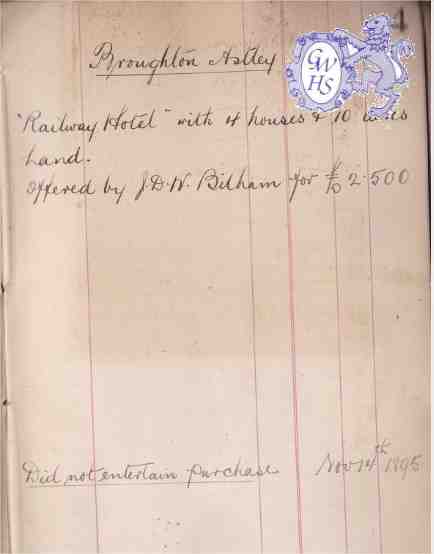 Broughton Astley
GWHS
"Railway Hotel" with 4 houses & 10 acres
Land.
Offered by J.D.W. Bilham for £ 2.500
Did not entertain purchase Nov 14th 1895